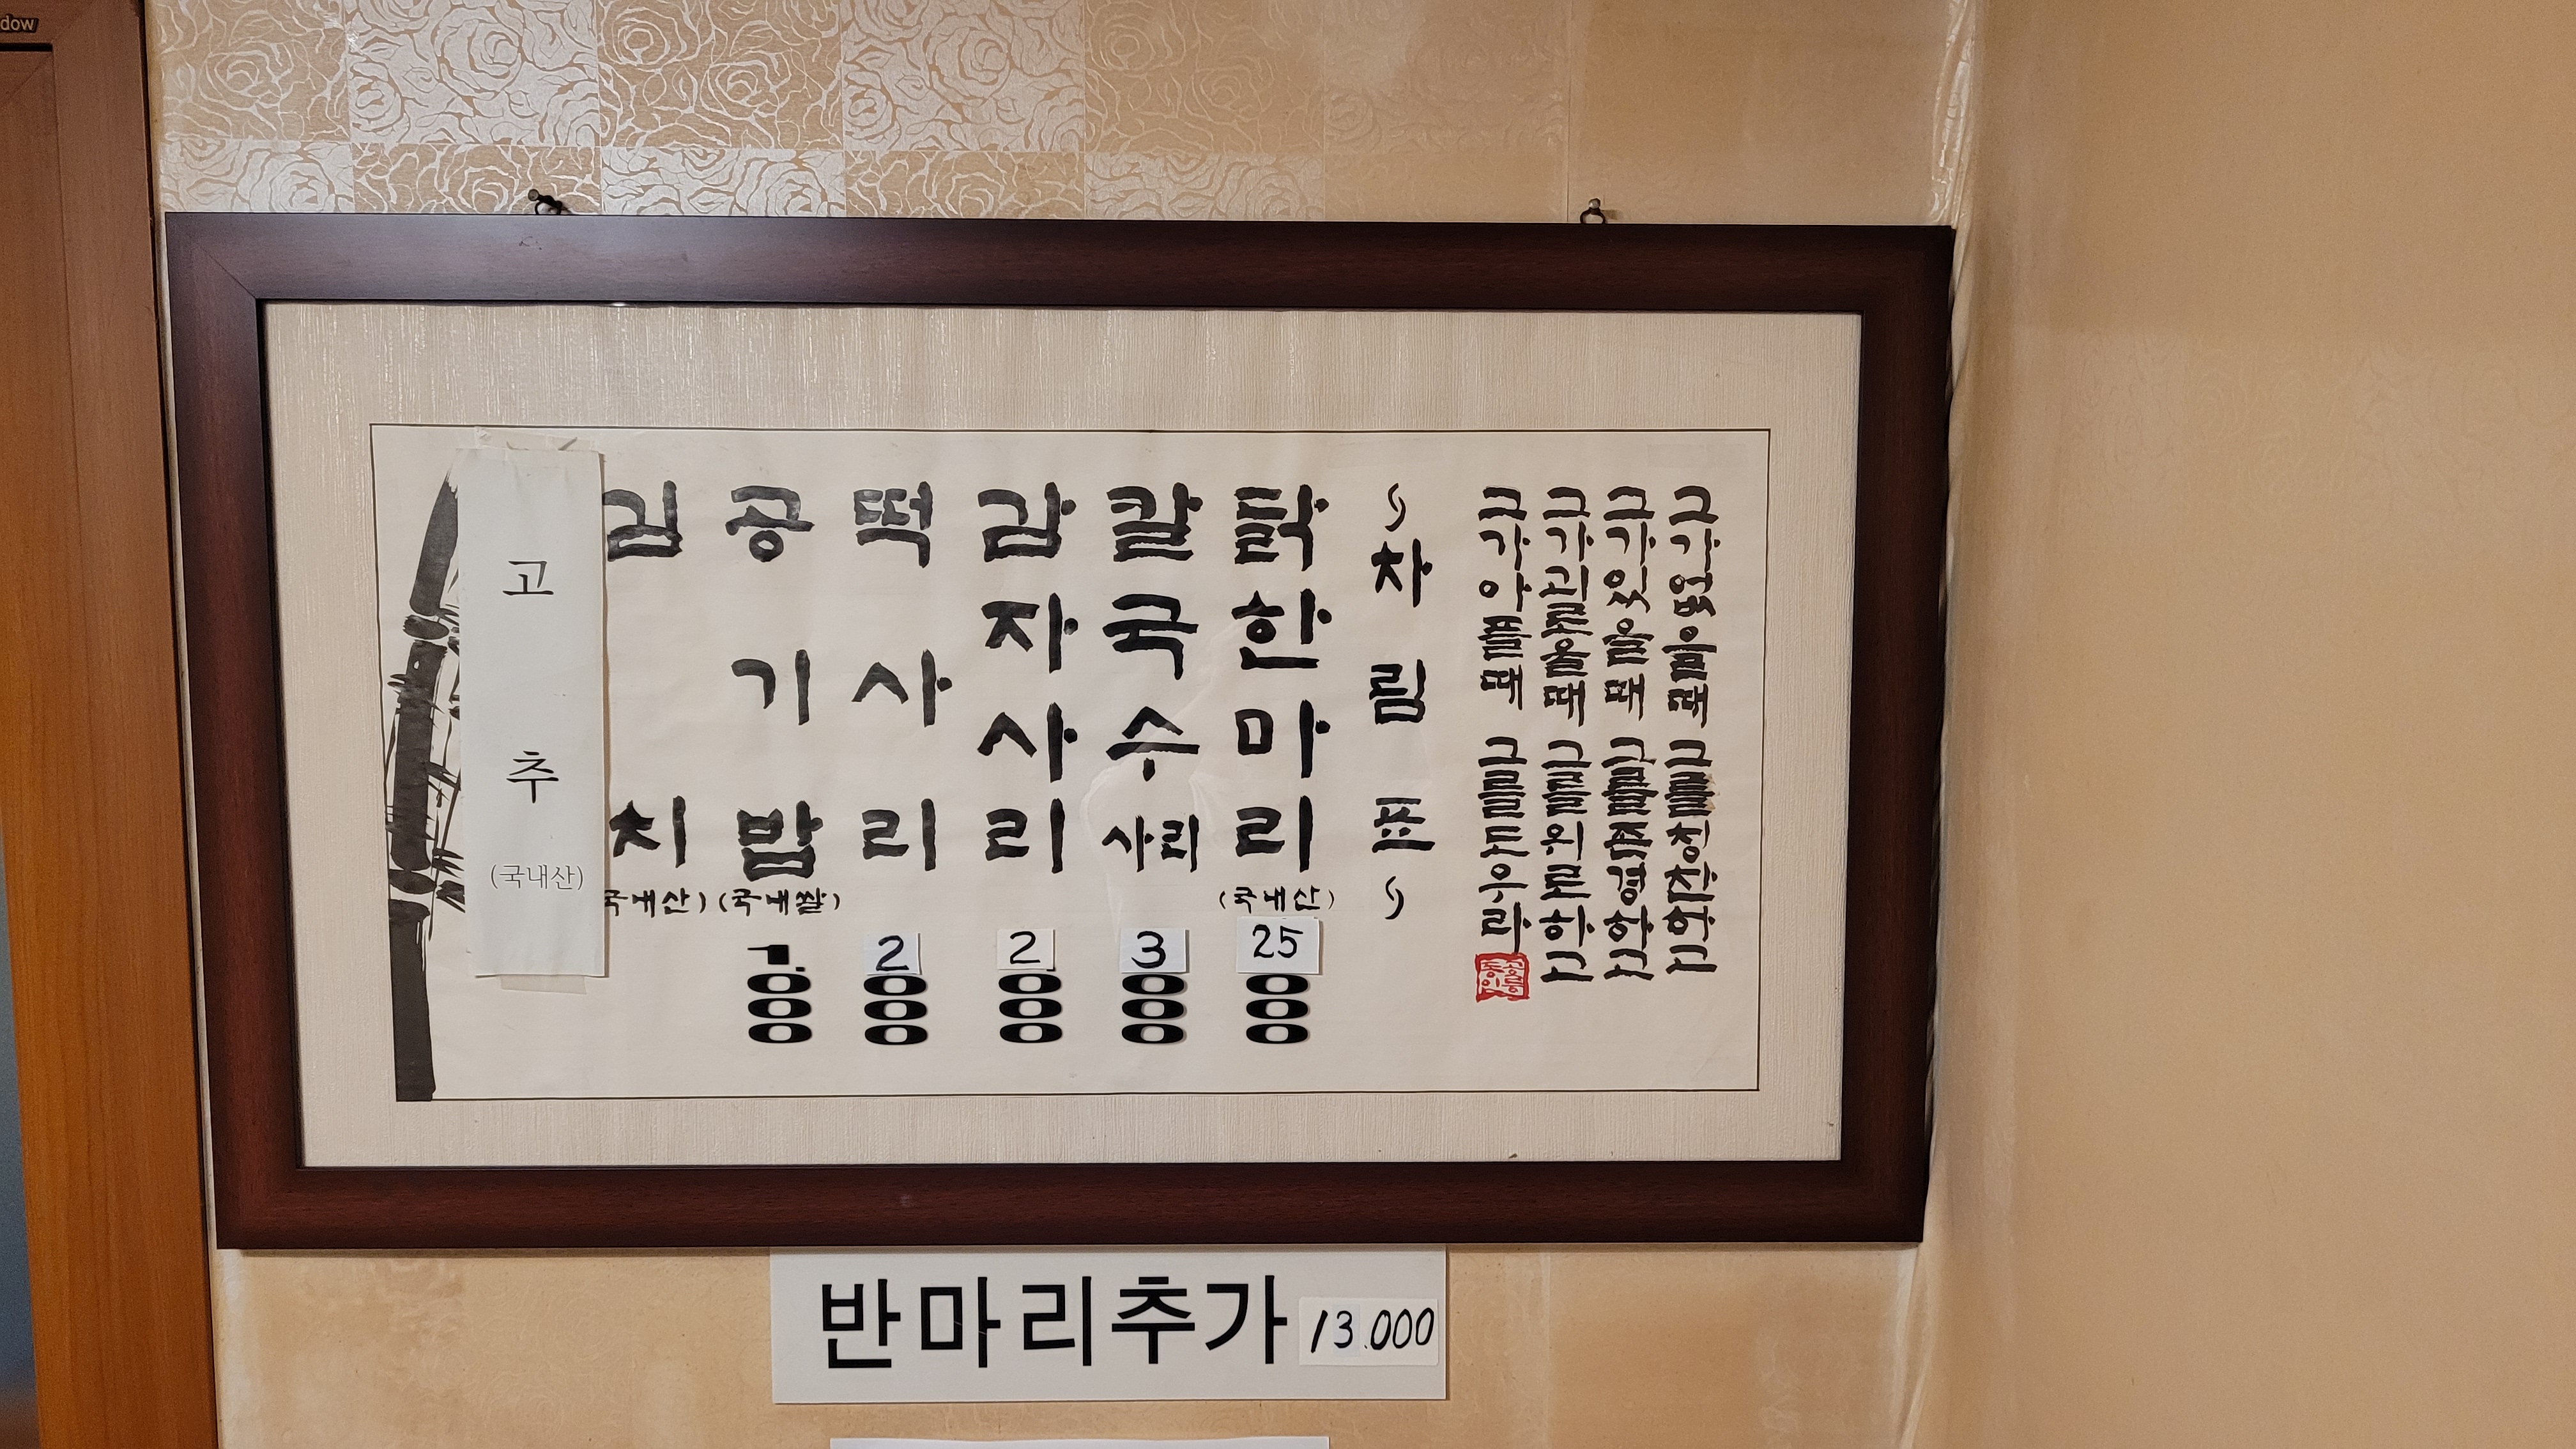 dow
그가없을때
그가있을때
그가 그를위로하고
그가아플때 그를도우라
차림표
닭한마리 (국내산) 25000
칼국수사리 3000
감자사리 2000
떡사리 2000
공기밥 (국내쌀) 1.000
김치 국내산)
고추 (국내산)
반마리추가 13.000